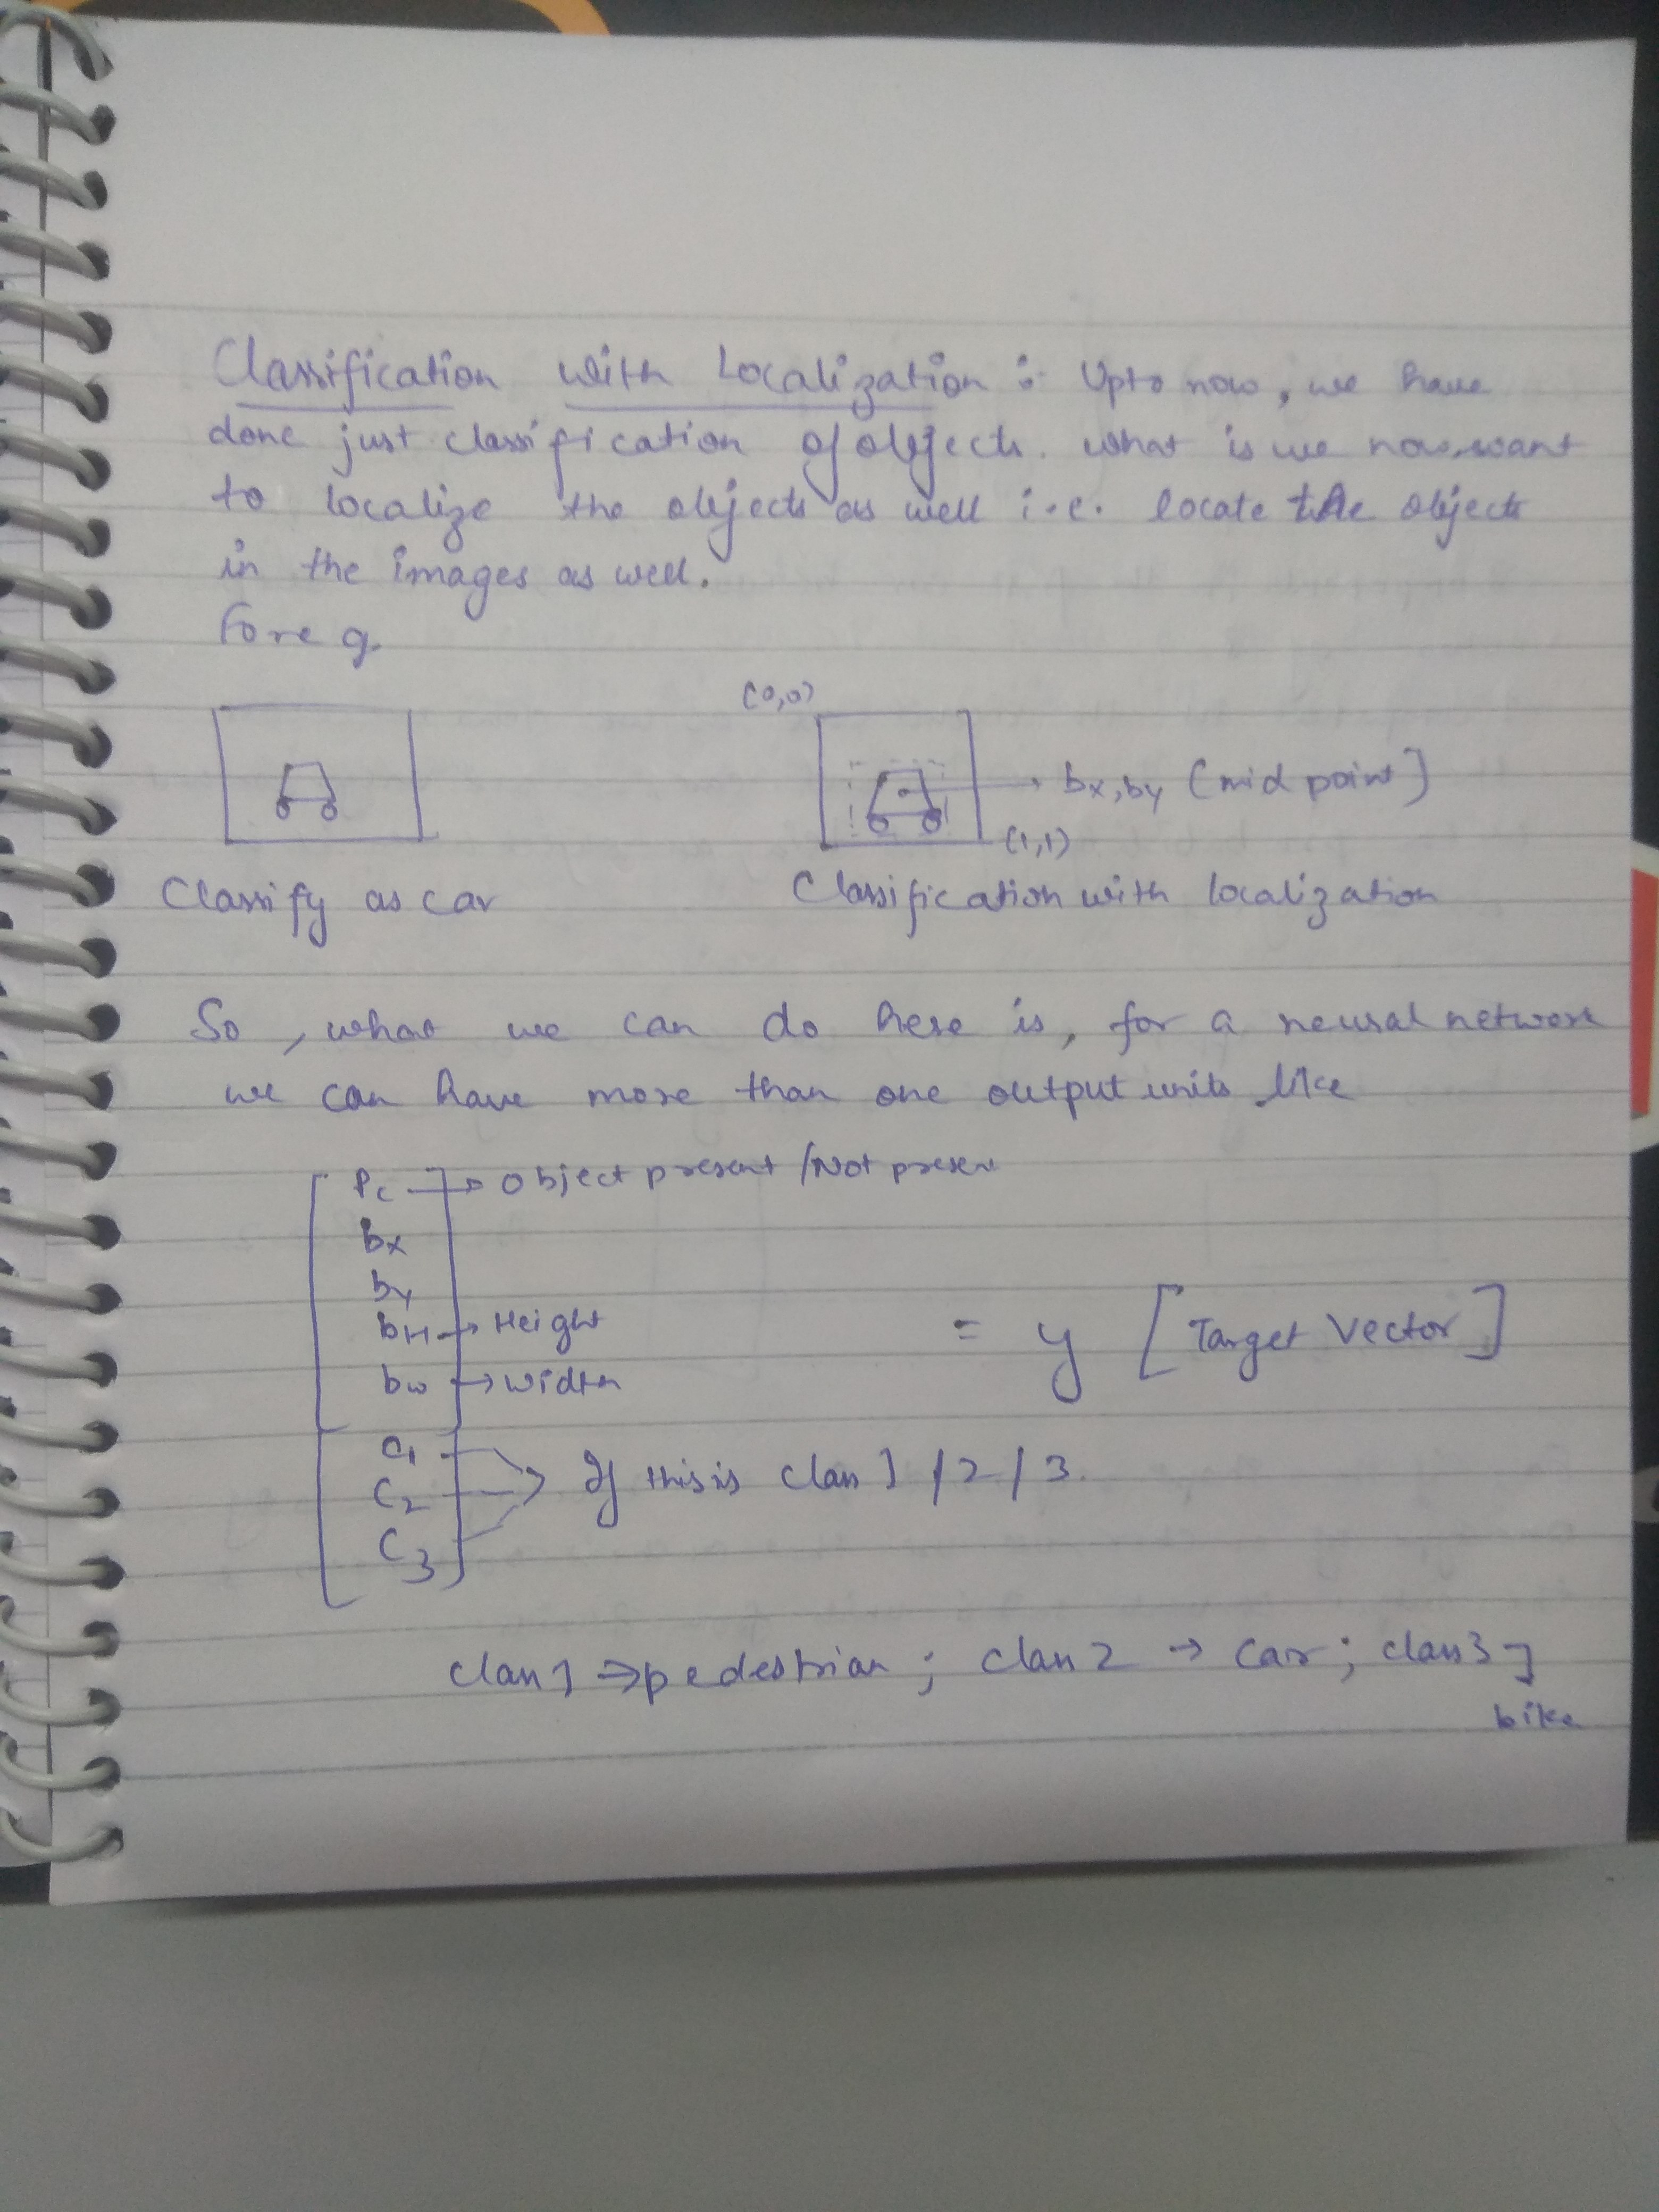 Classification with Localization :- Upto now, we have
done just classification of objects. What is we now want
to localize the objects as well i.e. locate the objects
in the images as well.
For eg.
(0,0)
bx, by (mid point]
(1,1)
Classify as car
Classification with localization
So, what we can do here is, for a neural network
we can have more than one output units like
Pc → Object present / Not present
bx
by
bH → Height
= y [Target Vector]
bw → width
C1
C2 If this is class 1 / 2 / 3.
C3
class 1 → pedestrian ; class 2 → car ; class 3 →
bike